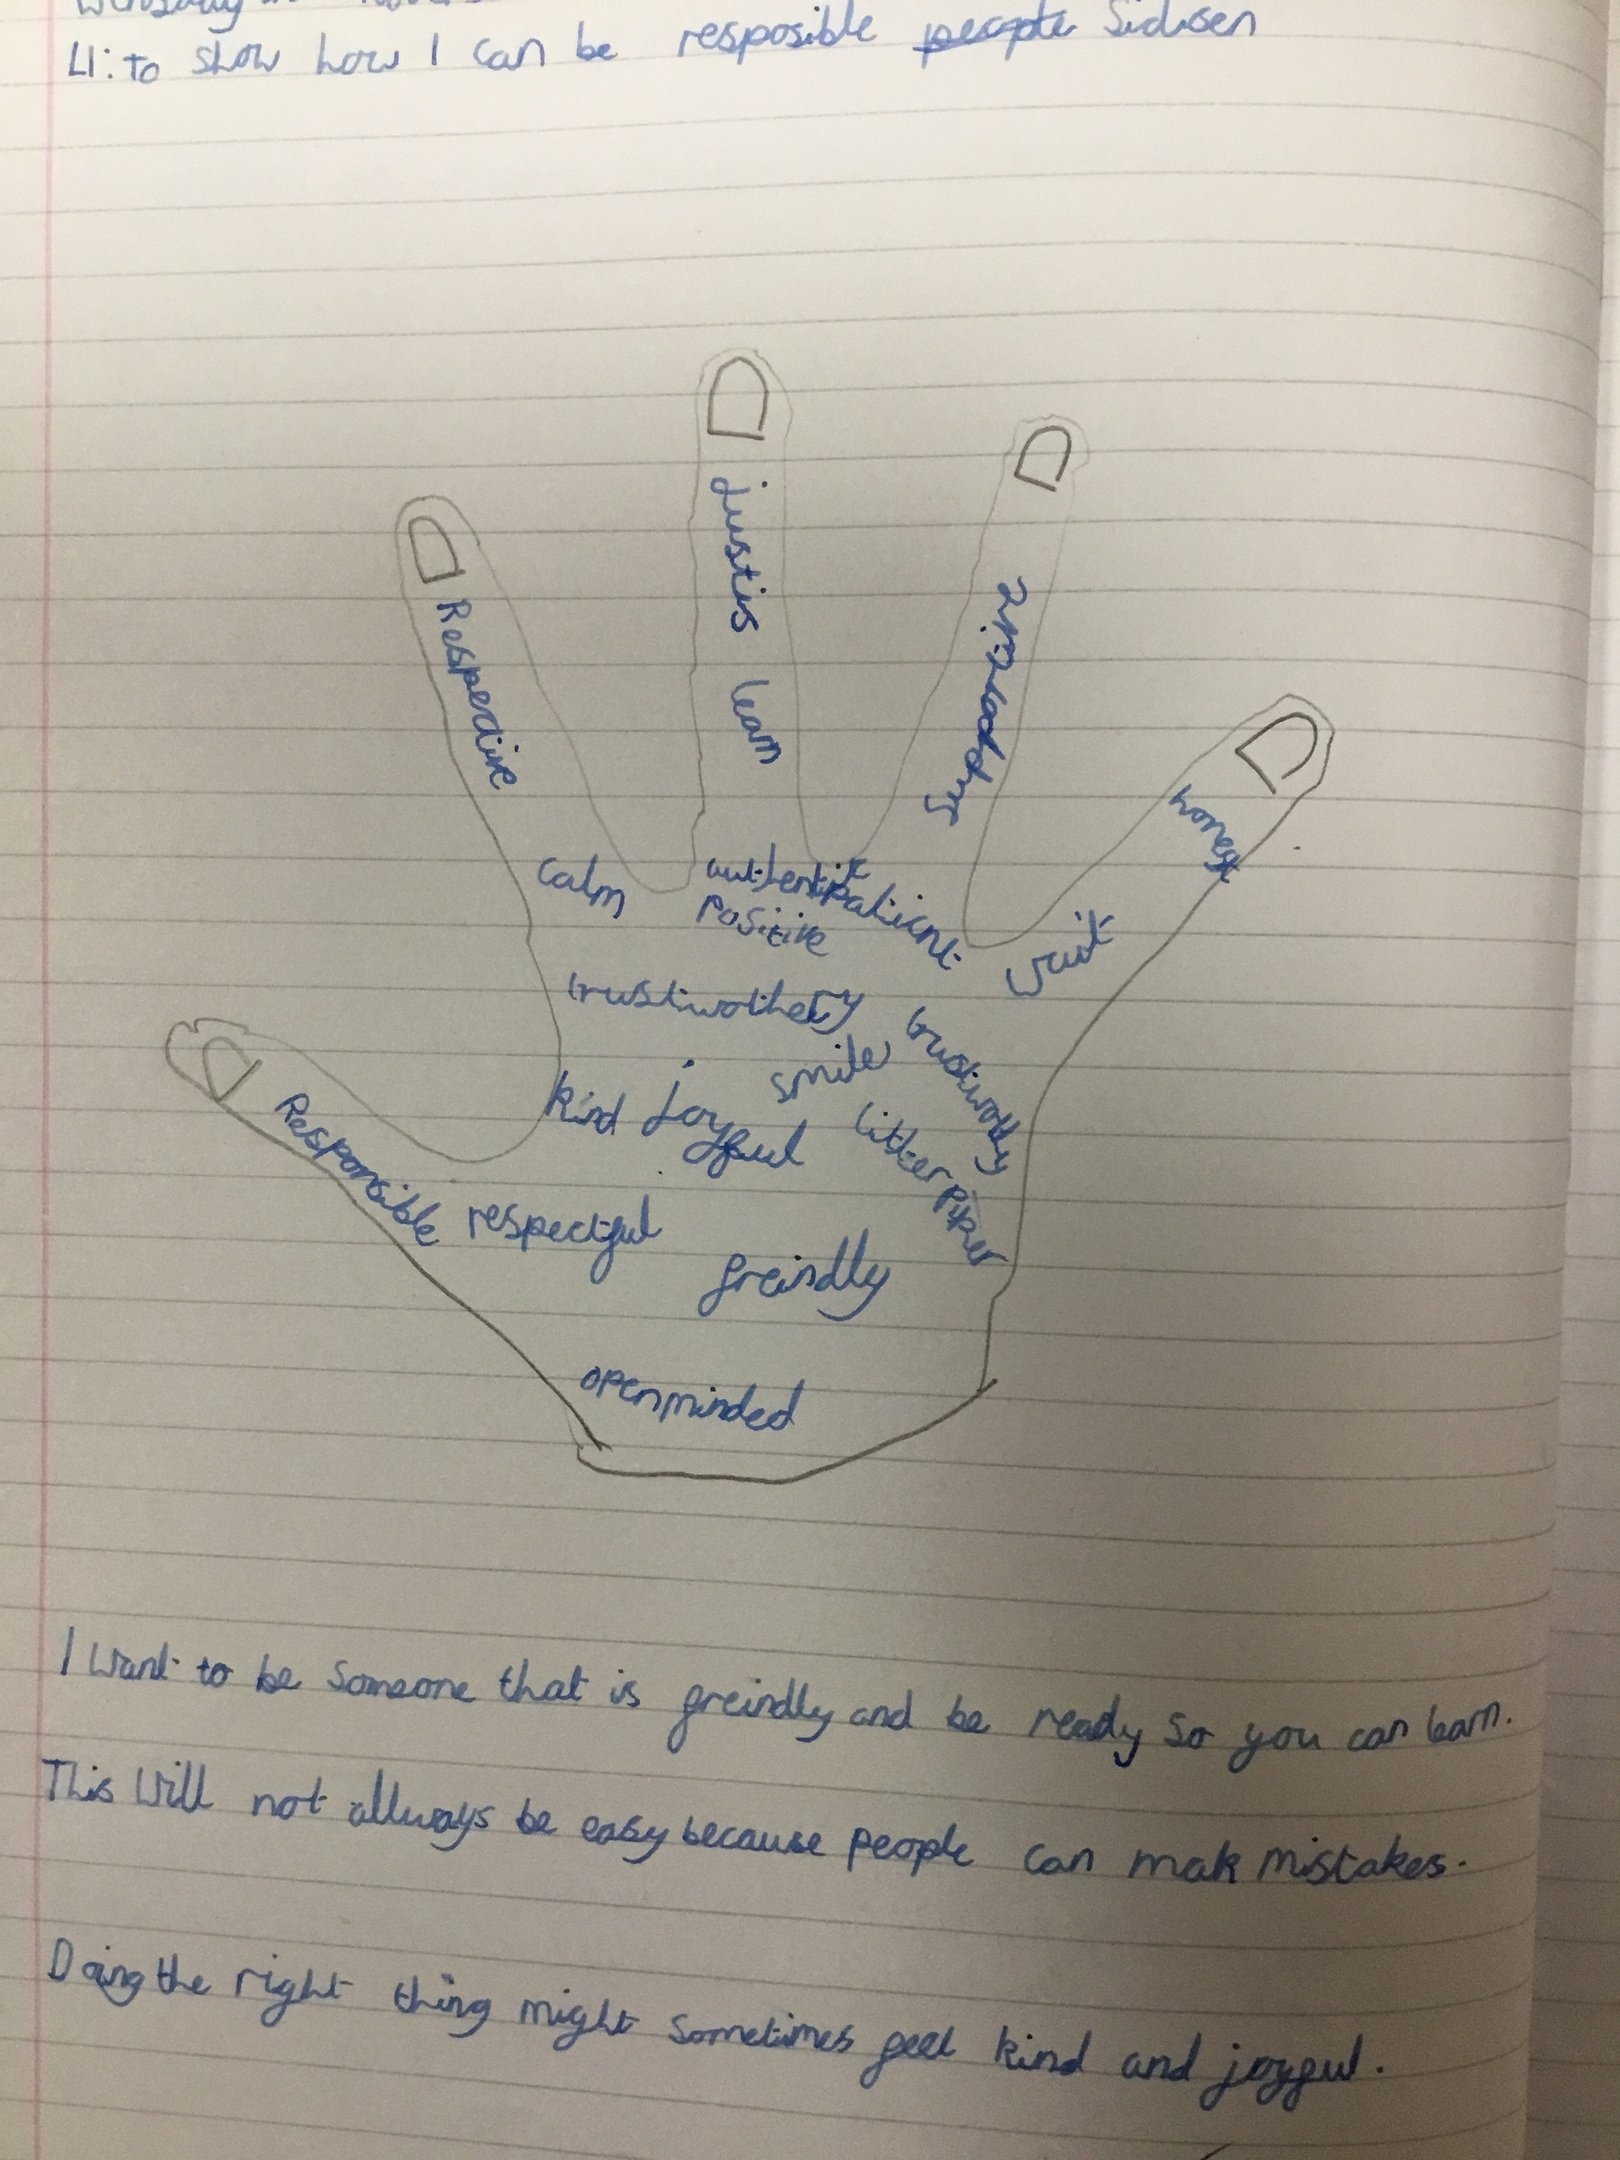 LI: to show how I can be resposible people Sidisen
justis learn
Respective
honest
calm
authentic
patient
positive
wait
trustiwothery
trustiworthy
smile
kind joyful
litter piker
Responsible respectful
freindly
openminded
I want to be someone that is freindly and be ready so you can learn.
This will not allways be easy because people can mak mistakes.
Doing the right thing might sometimes feel kind and joyful.